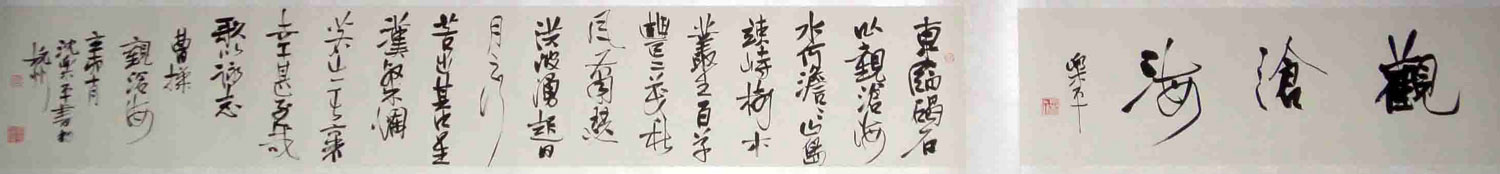 觀滄海
樂平
東臨碣石
以觀滄海
水何澹澹山島
竦峙樹木
叢生百草
豐茂秋
風蕭瑟
洪波湧起日
月之行
若出其中星
漢燦爛
幸甚至哉
歌以詠志
曹操
觀滄海
辛卯十月
沈樂平書於
杭州